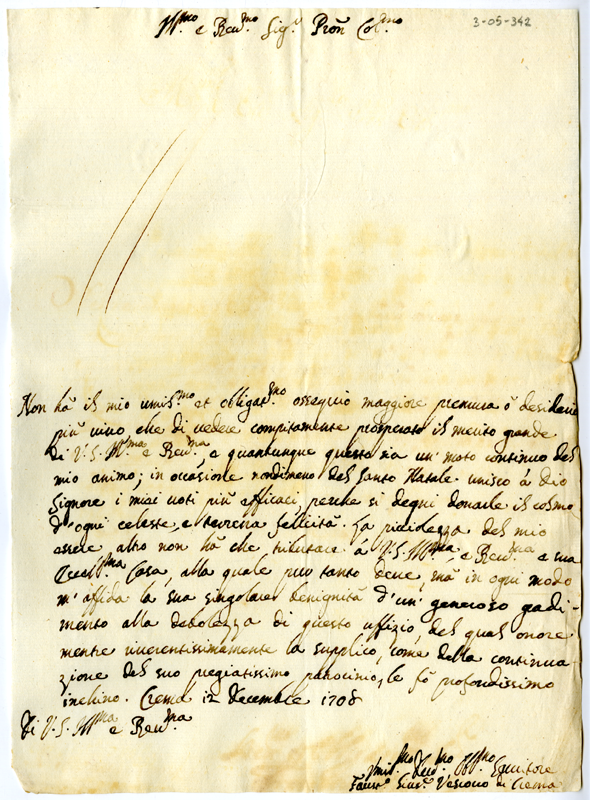 Ill.mo e Rev.mo Sig.r Pron Col.mo
3-05-342
Non hà il mio umil.mo et obligat.mo ossequio maggiore premura ò desiderio
più vivo che di vedere compitamente prosperato il merito grande
di V. S. Ill.ma e Rev.ma, e quantunque questo sia un' moto continuo del
mio animo; in occasione nondimeno del Santo Natale unisco à Dio
Signore i miei voti più efficaci, perche si degni donarle il colmo
d'ogni celeste, e terrena felicità. La picidezza del mio
essere altro non hà che tributare à V. S. Ill.ma e Rev.ma e sua
Ecell.ma Casa, alla quale pur tanto deve, mà in ogni modo
m'affida la sua singolare benignità d'un' generoso gadi-
mento alla debolezza di questo uffizio, del qual onore
mentre riverentissimamente la supplico, come della continua
zione del suo pregiatissimo patrocinio, le fò profondissimo
inchino. Crema 12 Decembre 1708
Di V. S. Ill.ma e Rev.ma
Umil.mo Dev.mo Obl.mo Servitore
Faust.o Gius.e Vescovo di Crema